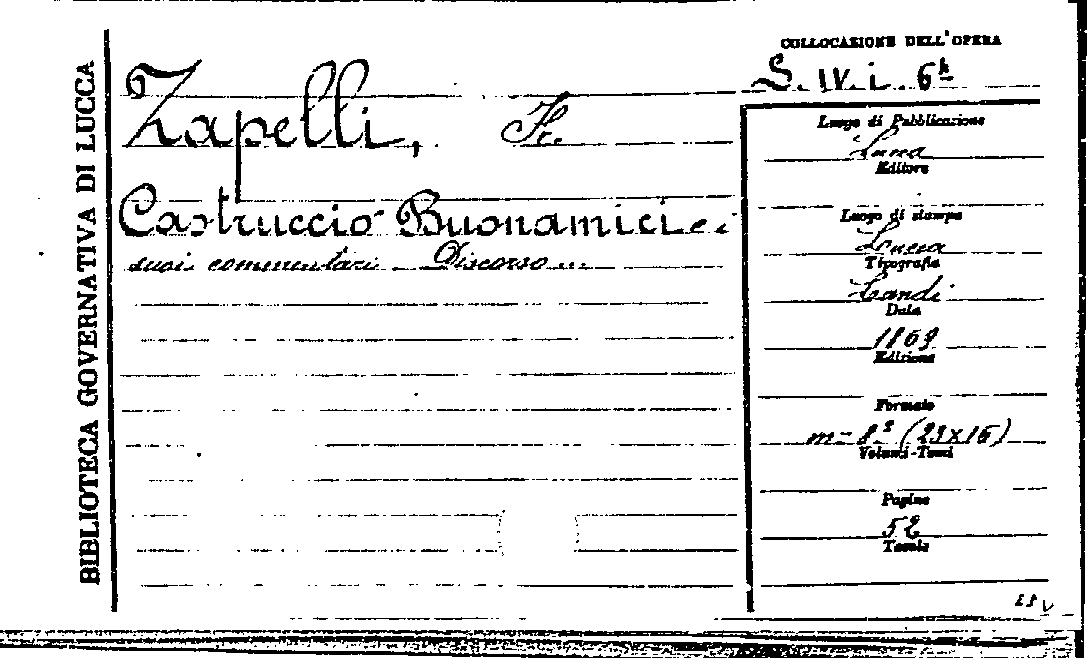 BIBLIOTECA GOVERNATIVA DI LUCCA
Zapelli, Fr.
Castruccio Buonamici e i
suoi commentari. Discorso...
COLLOCAZIONE DELL'OPERA
S. IV. i. 6
Luogo di Pubblicazione
Lucca
Editore
Luogo di stampa
Lucca
Tipografia
Landi
Data
1869
Edizione
Formato
in-8º (23x16)
Volumi-Tomi
Pagine
52
Tavole